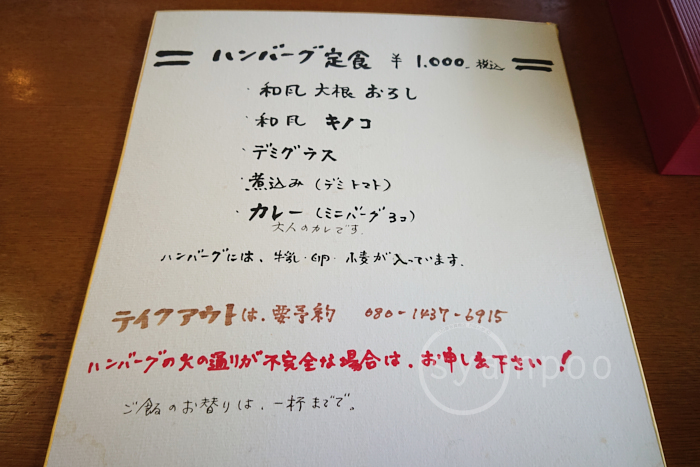 ハンバーグ定食 ¥1.000- 税込
・和風 大根 おろし
・和風 キノコ
・デミグラス
・煮込み(デミトマト)
・カレー(ミニバーグ3コ)
大人のカレーです。
ハンバーグには、牛乳・卵・小麦が入っています。
テイクアウトは、要予約 080-1437-6915
ハンバーグの火の通りが不完全な場合は、お申し出下さい!
ご飯のお替りは、一杯までで。
syunpoo